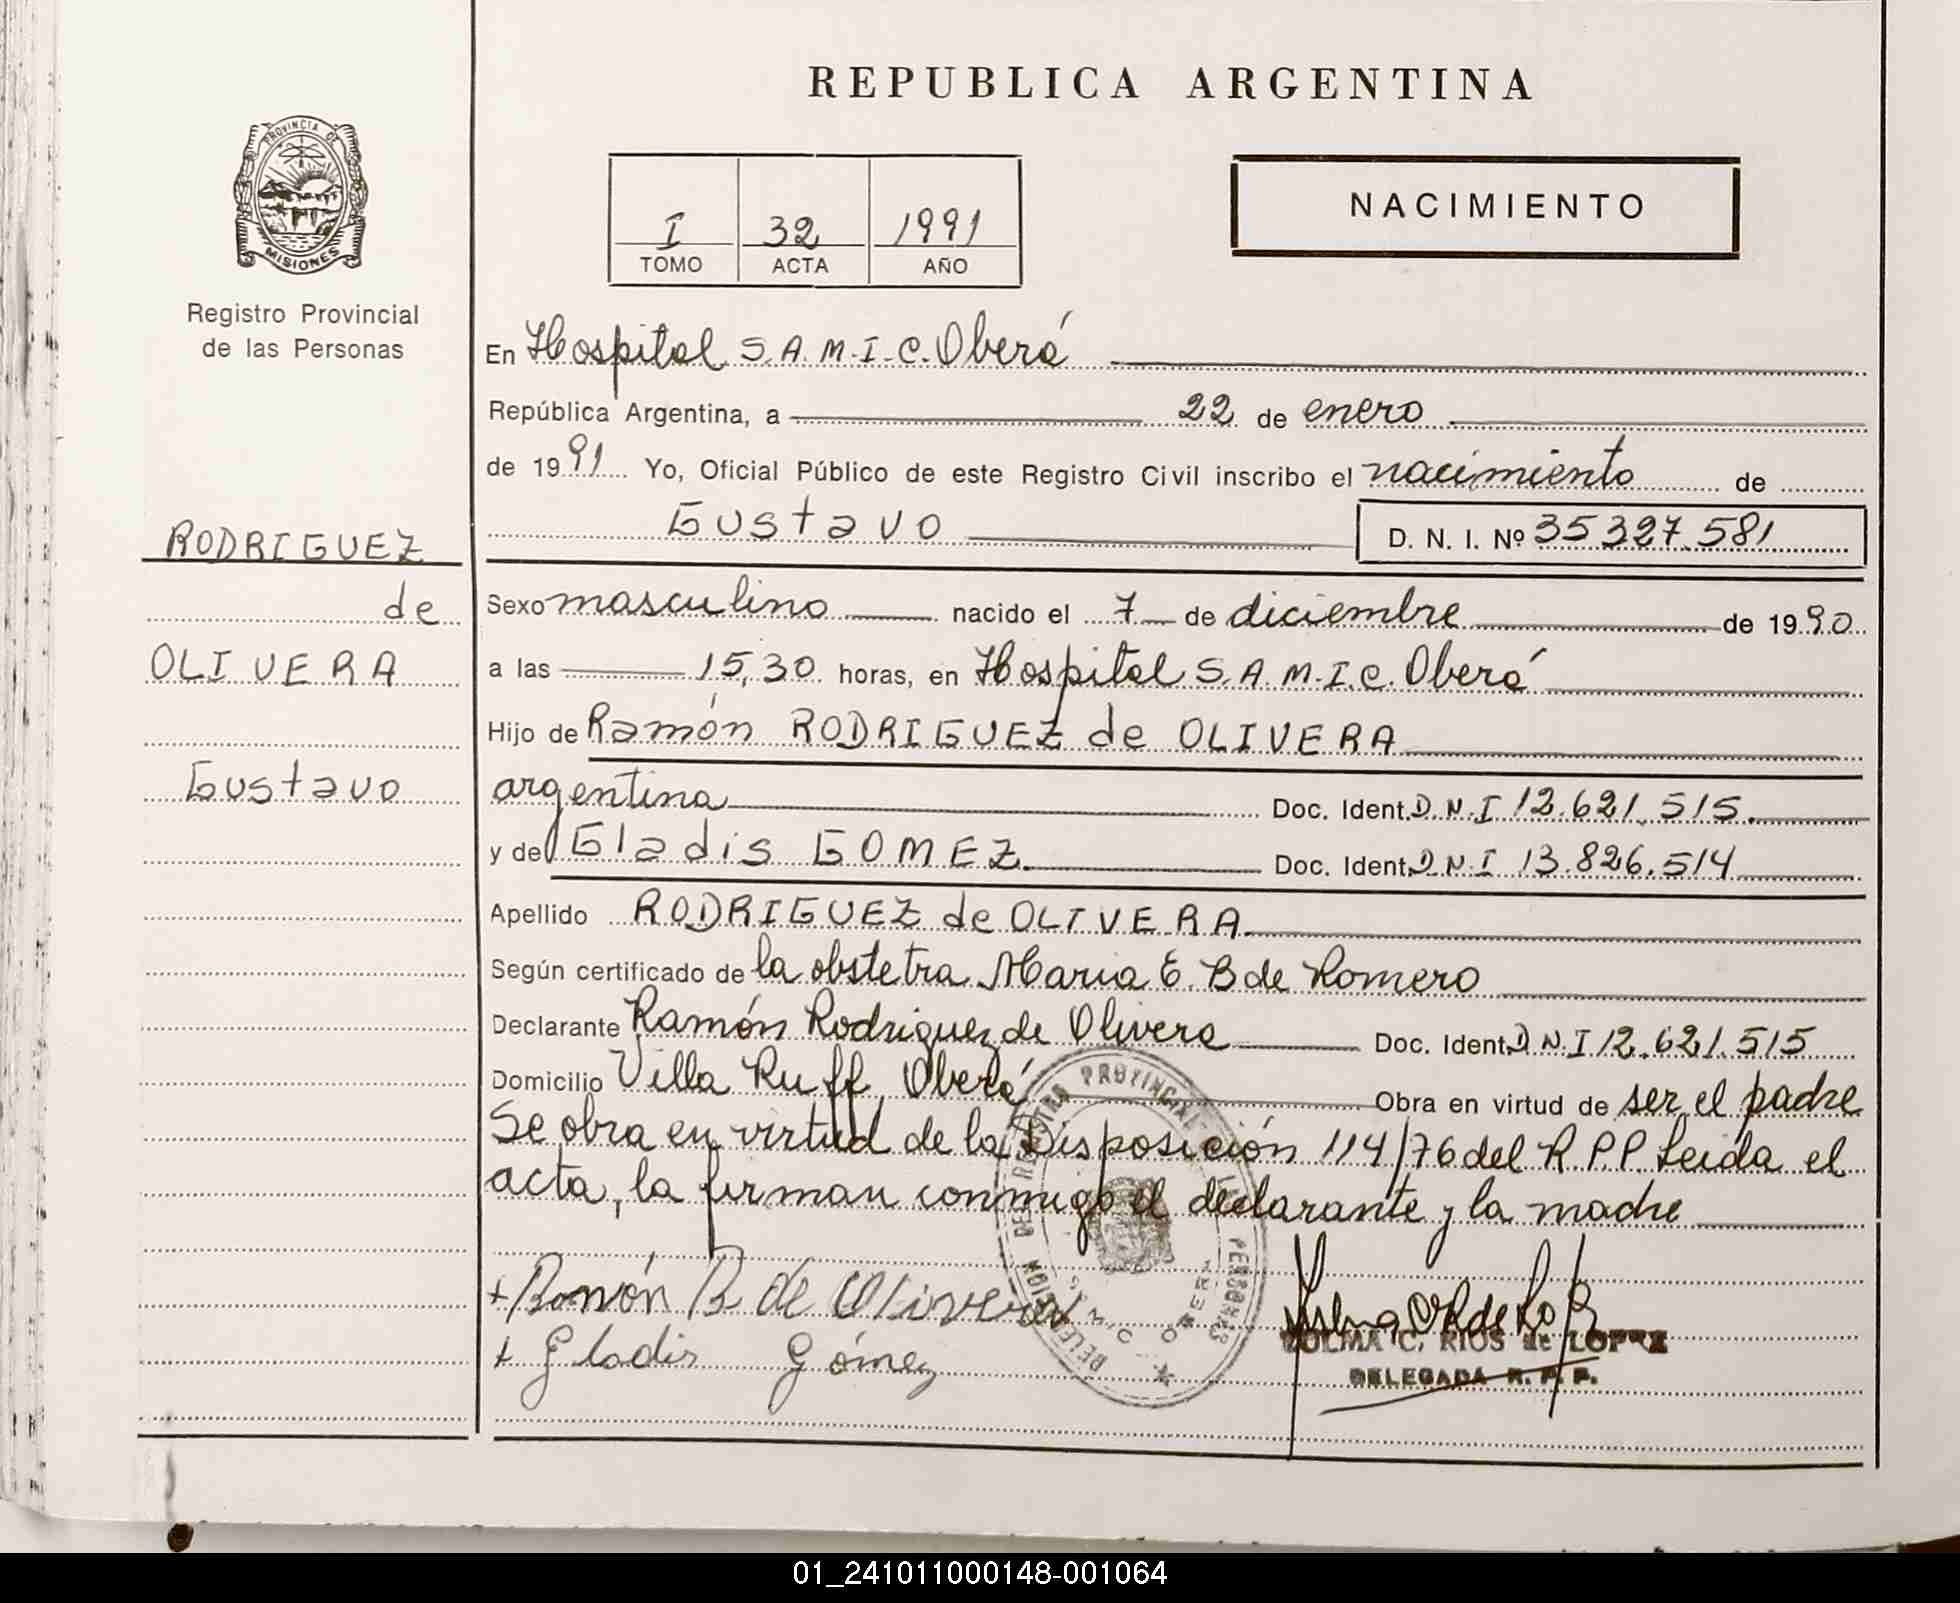 REPUBLICA ARGENTINA
PROVINCIA DE
MISIONES
Registro Provincial
de las Personas
I 32 1991
TOMO ACTA AÑO
NACIMIENTO
RODRIGUEZ
de
OLIVERA
Gustavo
En Hospital S.A.M.I.C. Oberá
República Argentina, a 22 de enero
de 1991 Yo, Oficial Público de este Registro Civil inscribo el nacimiento de
Gustavo D. N. I. Nº 35 327.581
Sexo masculino nacido el 7 de diciembre de 1990
a las 15,30 horas, en Hospital S.A.M.I.C. Oberá
Hijo de Ramón RODRIGUEZ de OLIVERA
argentina Doc. Ident. D.N.I 12.621.515.
y de Gladis GOMEZ. Doc. Ident. D.N.I 13.826.514
Apellido RODRIGUEZ de OLIVERA.
Según certificado de la obstetra Maria E. B de Romero
Declarante Ramón Rodriguez de Olivera Doc. Ident. D.N.I 12.621.515
Domicilio Villa Ruff. Oberá Obra en virtud de ser el padre
Se obra en virtud de la Disposición 114/76 del R.P.P. Leida el
acta, la firman conmigo el declarante y la madre
+ Ramón R de Olivera
+ Gladis Gómez
C. RIOS de LOPEZ
DELEGADA R. P. P.
01_241011000148-001064